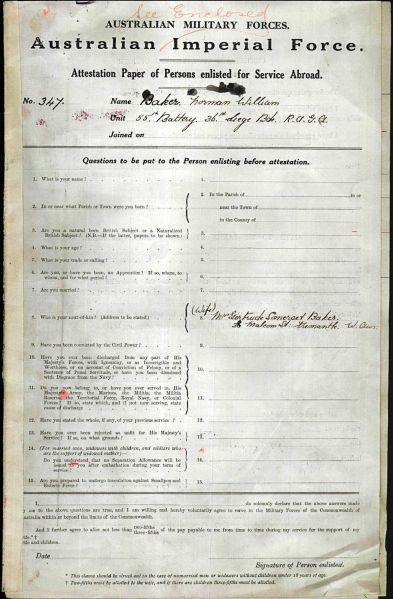 See Enclosed
AUSTRALIAN MILITARY FORCES.
Australian Imperial Force.
Attestation Paper of Persons enlisted for Service Abroad.
No. 347. Name Baker, Norman William
Unit 55th Battery. 36th Siege Bde. R.A.G.A.
Joined on
Questions to be put to the Person enlisting before attestation.
1. What is your name?
1.
2. In or near what Parish or Town were you born?
2. In the Parish of in or
near the Town of
in the County of
3. Are you a natural born British Subject or a Naturalized
British Subject? (N.B.—If the latter, papers to be shown.)
3.
4. What is your age?
4.
5. What is your trade or calling?
5.
6. Are you, or have you been, an Apprentice? If so, where, to
whom, and for what period?
6.
7. Are you married?
7.
8. Who is your next-of-kin? (Address to be stated)
8. (Wife) Mrs Gertrude Somerset Baker,
Malcom St. Fremantle W. Aus.
9. Have you been convicted by the Civil Power?
9.
10. Have you ever been discharged from any part of His
Majesty's Forces, with Ignominy, or as Incorrigible and
Worthless, or on account of Conviction of Felony, or of a
Sentence of Penal Servitude, or have you been dismissed
with Disgrace from the Navy?
10.
11. Do you now belong to, or have you ever served in, His
Majesty's Army, the Marines, the Militia, the Militia
Reserve, the Territorial Force, Royal Navy, or Colonial
Forces? If so, state which, and if not now serving, state
cause of discharge
11.
12. Have you stated the whole, if any, of your previous service?
12.
13. Have you ever been rejected as unfit for His Majesty's
Service? If so, on what grounds?
13.
14. (For married men, widowers with children, and soldiers who
are the support of widowed mother)—
Do you understand that no Separation Allowance will be
issued to you after embarkation during your term of
service?
14.
15. Are you prepared to undergo inoculation against Smallpox and
Enteric Fever?
15.
I, do solemnly declare that the above answers made
by me to the above questions are true, and I am willing and hereby voluntarily agree to serve in the Military Forces of the Commonwealth of
Australia within or beyond the limits of the Commonwealth.
And I further agree to allot not less than two-fifths three-fifths of the pay payable to me from time to time during my service for the support of my
wife.*†
wife and children.
Date
Signature of Person enlisted.
* This clause should be struck out in the case of unmarried men or widowers without children under 18 years of age.
† Two-fifths must be allotted to the wife, and if there are children three-fifths must be allotted.